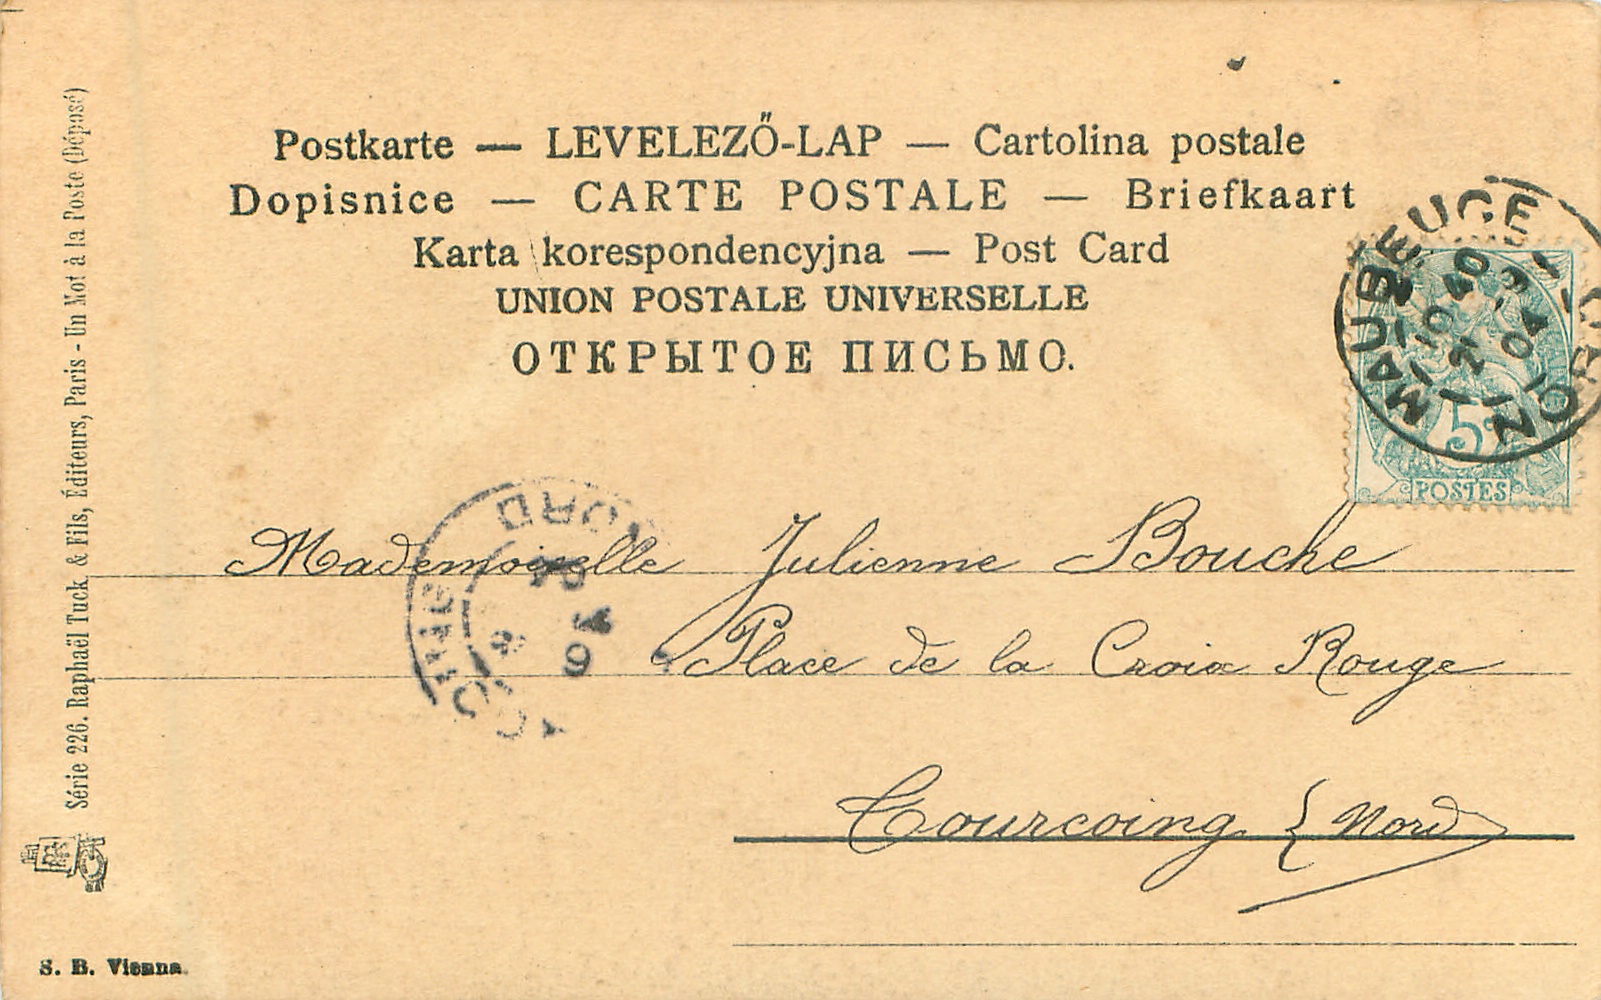 Postkarte — LEVELEZŐ-LAP — Cartolina postale
Dopisnice — CARTE POSTALE — Briefkaart
Karta korespondencyjna — Post Card
UNION POSTALE UNIVERSELLE
ОТКРЫТОЕ ПИСЬМО.
MAUBEUGE
NORD
5c
POSTES
NORD
04
Mademoiselle Julienne Bouche
Place de la Croix Rouge
Tourcoing (Nord)
Série 226. Raphaël Tuck & Fils, Éditeurs, Paris - Un Mot à la Poste (Déposé)
S. B. Vienna.